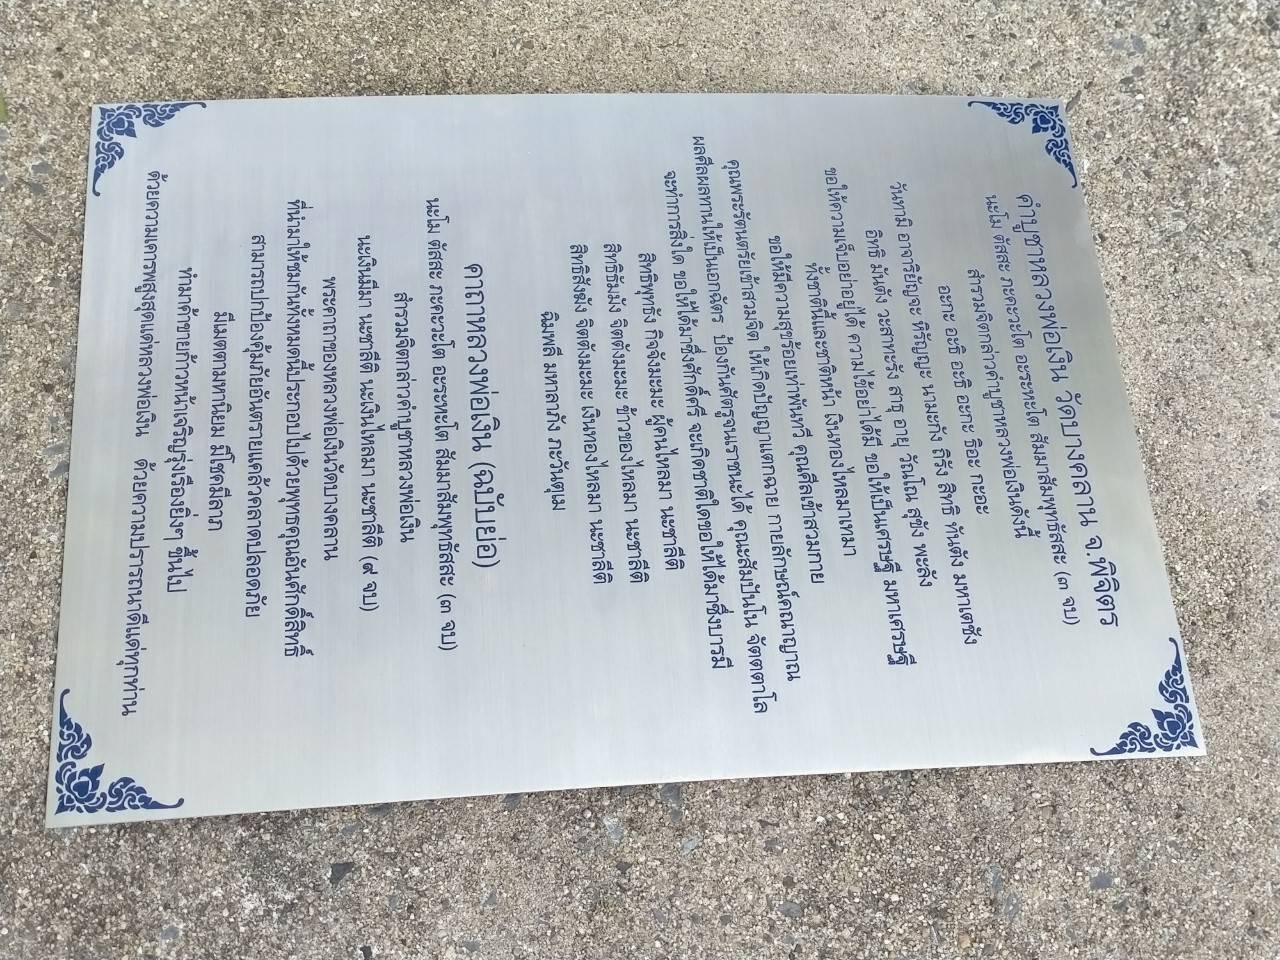 คำบูชาหลวงพ่อเงิน วัดบางคลาน จ.พิจิตร
นะโม ตัสสะ ภะคะวะโต อะระหะโต สัมมาสัมพุทธัสสะ (๓ จบ)
สำรวมจิตกล่าวคำบูชาหลวงพ่อเงินดังนี้
อะกะ อะธิ อะธิ อะกะ ธิอะ กะอะ
วันทามิ อาจาริยัญจะ หิรัญญะ นามะกัง ถิรัง สิทธิ ทันตัง มหาเตชัง
อิทธิ มันตัง วะสาหะรัง สาธุ อายุ วัณโณ สุขัง พะลัง
ขอให้ความเจ็บอย่าอยู่ได้ ความไข้อย่าได้มี ขอให้เป็นเศรษฐี มหาเศรษฐี
ทั้งชาตินี้และชาติหน้า เงินทองไหลมาเทมา
ขอให้มีความสุขร้อยเท่าพันทวี คุณศีลเข้าสวมกาย
คุณพระรัตนตรัยเข้าสวมจิต ให้เกิดปัญญาแตกฉาน กายลักษณ์คณาญาณ
ผลศีลผลทานให้เป็นเอกฉัตร ป้องกันศัตรูจนราชนะได้ คุณะสัมปันโน จัตตตาโล
จะทำการสิ่งใด ขอให้ได้มาซึ่งศักดิ์ศรี จะเกิดชาติใดขอให้ได้มาซึ่งบารมี
สิทธิพุทธัง กิจจังมะมะ ผู้คนไหลมา นะชาลีติ
สิทธิธัมมัง จิตตังมะมะ ข้าวของไหลมา นะชาลีติ
สิทธิสังฆัง จิตตังมะมะ เงินทองไหลมา นะชาลีติ
ฉิมพลี มหาลาภัง ภะวันตุเม
คาถาหลวงพ่อเงิน (ฉบับย่อ)
นะโม ตัสสะ ภะคะวะโต อะระหะโต สัมมาสัมพุทธัสสะ (๓ จบ)
สำรวมจิตกล่าวคำบูชาหลวงพ่อเงิน
นะเงินมีมา นะชาลีติ นะเงินไหลมา นะชาลีติ (๙ จบ)
พระคาถาของหลวงพ่อเงินวัดบางคลาน
ที่นำมาให้ชมกันทั้งหมดนี้ประกอบไปด้วยพุทธคุณอันศักดิ์สิทธิ์
สามารถปกป้องคุ้มภัยอันตรายแคล้วคลาดปลอดภัย
มีเมตตามหานิยม มีโชคมีลาภ
ทำมาค้าขายก้าวหน้าเจริญรุ่งเรืองยิ่งๆ ขึ้นไป
ด้วยความเคารพสูงสุดแด่หลวงพ่อเงิน ด้วยความปรารถนาดีแด่ทุกท่าน